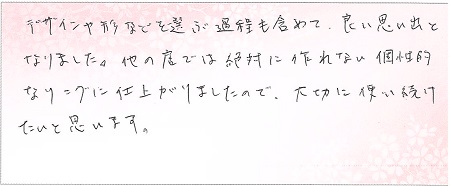 デザインや形などを選ぶ過程も含めて、良い思い出と
なりました。他の店では絶対に作れない個性的
なリングに仕上がりましたので、大切に使い続け
たいと思います。